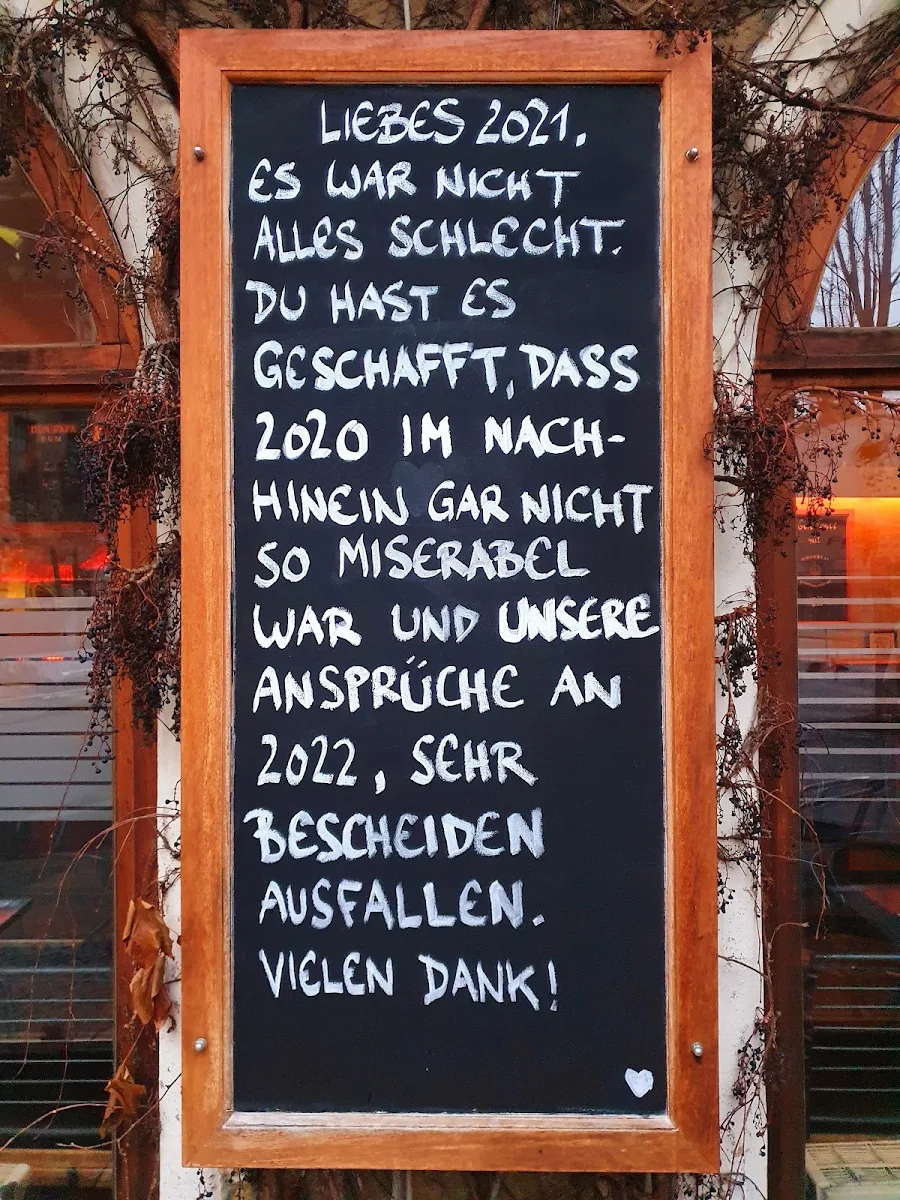 LIEBES 2021.
ES WAR NICHT
ALLES SCHLECHT.
DU HAST ES
GESCHAFFT, DASS
2020 IM NACH-
HINEIN GAR NICHT
SO MISERABEL
WAR UND UNSERE
ANSPRÜCHE AN
2022, SEHR
BESCHEIDEN
AUSFALLEN.
VIELEN DANK!